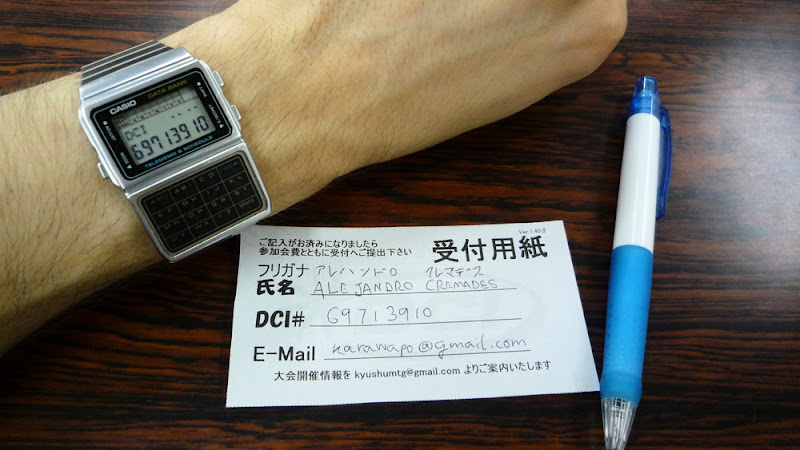 CASIO DATA BANK
DCI
69713910
TELEMEMO & SCHEDULE
Ver 1.40β
ご記入がお済みになりましたら
参加会費とともに受付へご提出下さい
受付用紙
フリガナ アレハンドロ クレマデス
氏名 ALEJANDRO CREMADES
DCI# 69713910
E-Mail karawapo@gmail.com
大会開催情報を kyushumtg@gmail.com よりご案内いたします